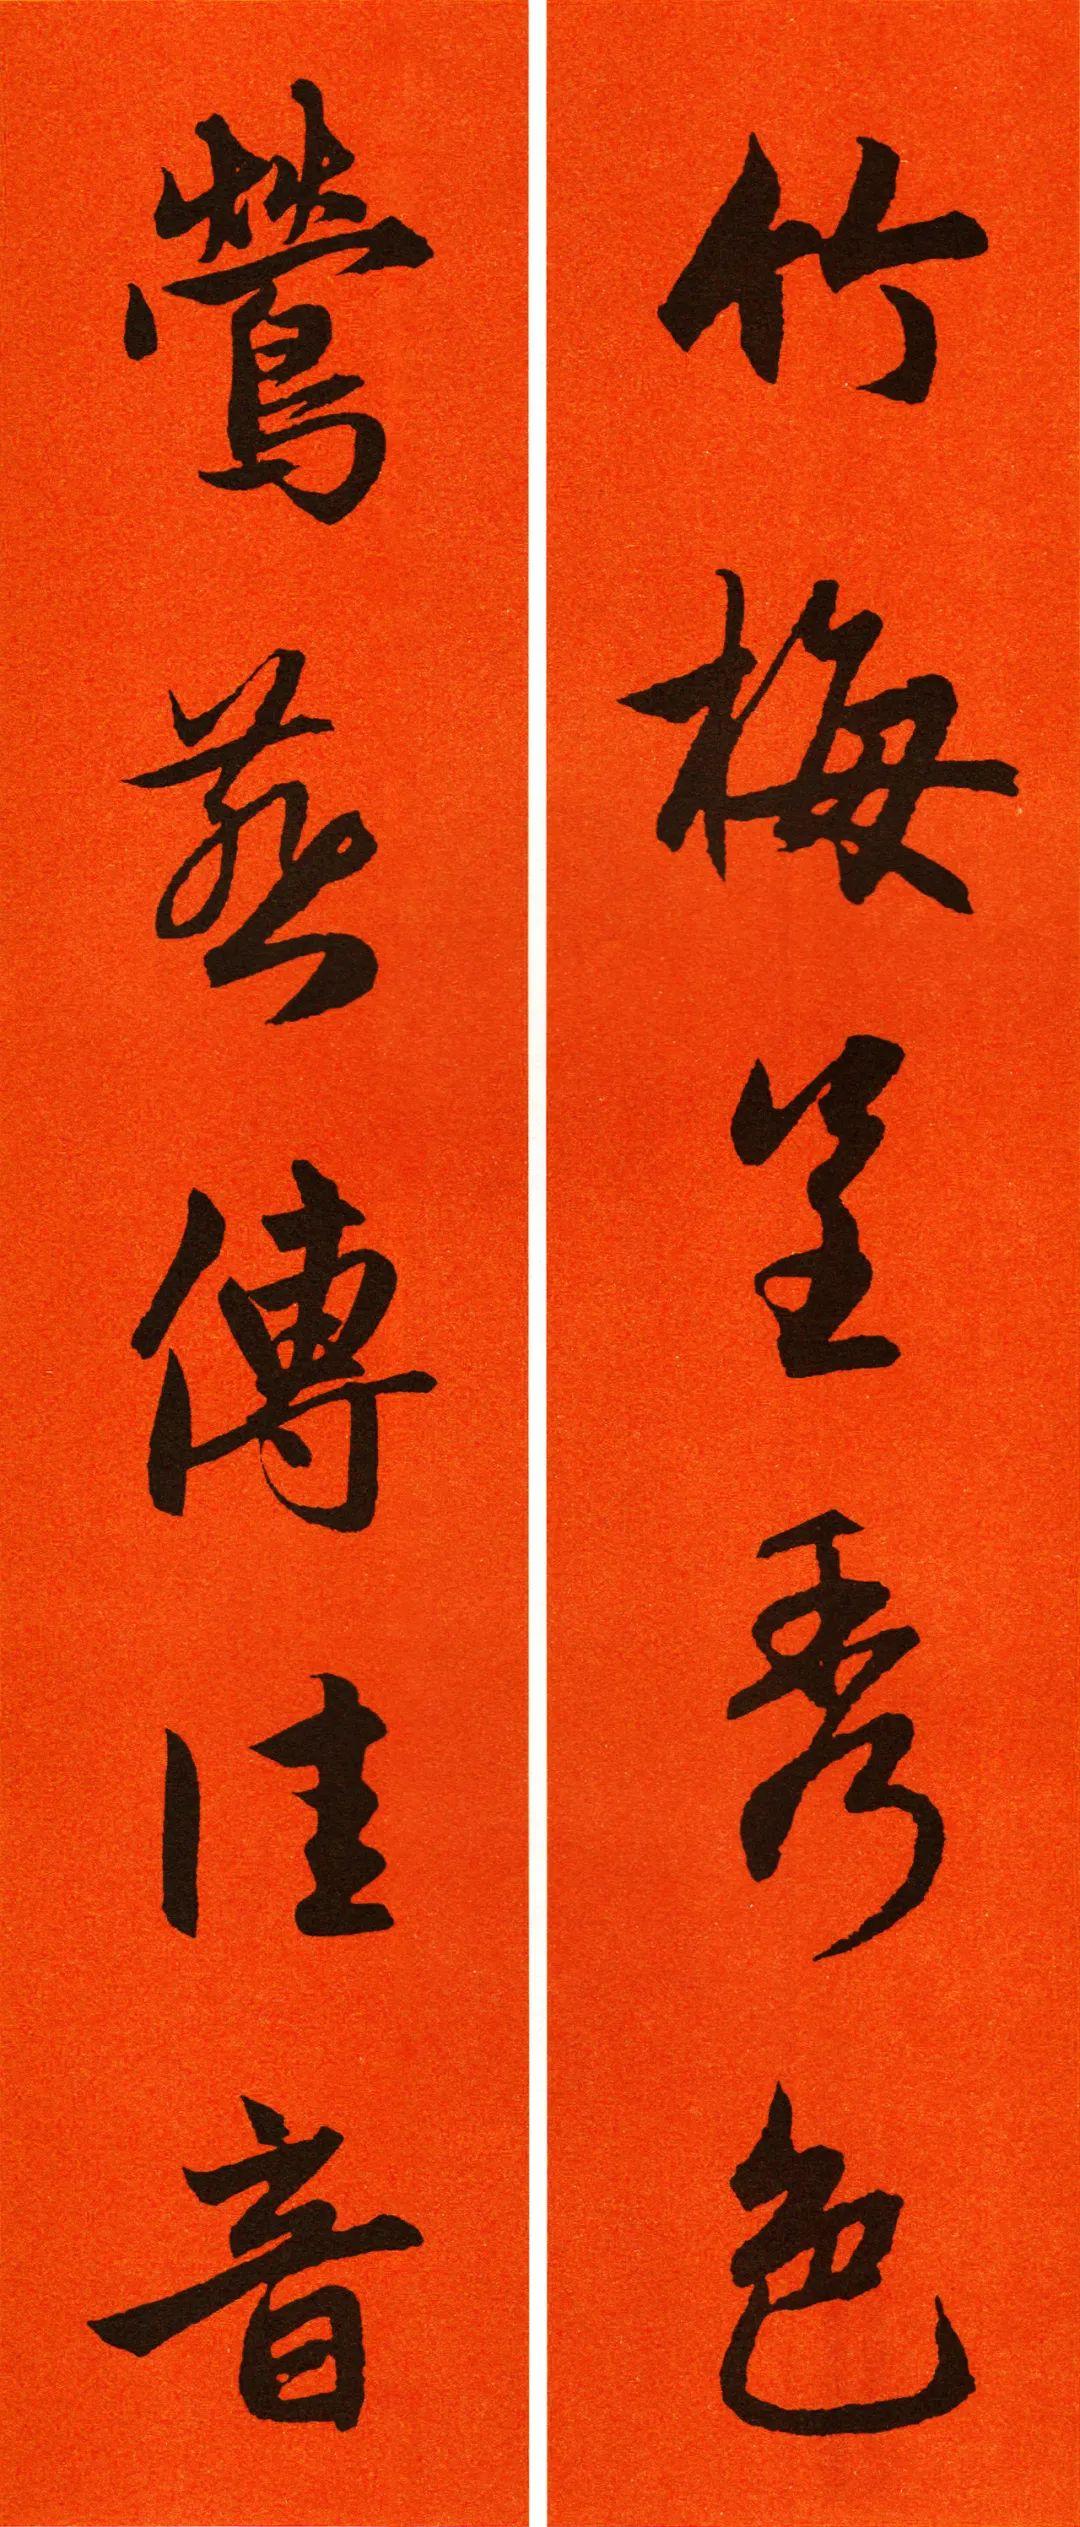 竹梅呈秀色
鶯燕傳佳音